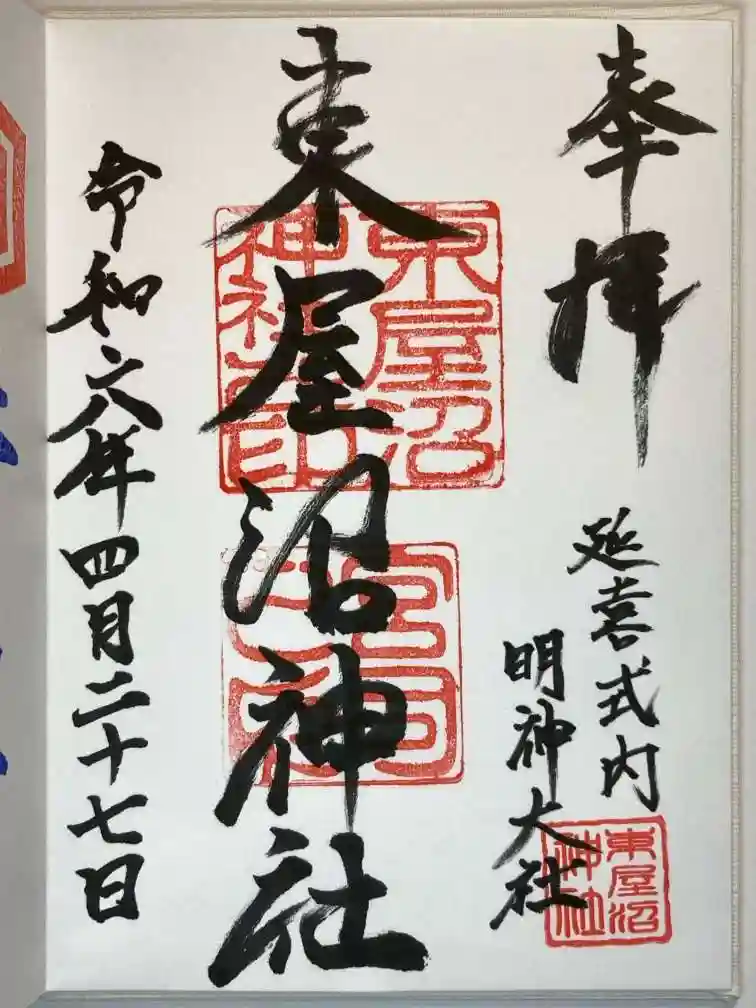 奉拝
延喜式内
明神大社
東屋沼神社
東屋沼神社
神社印
東屋沼
宮司
之印
令和六年四月二十七日